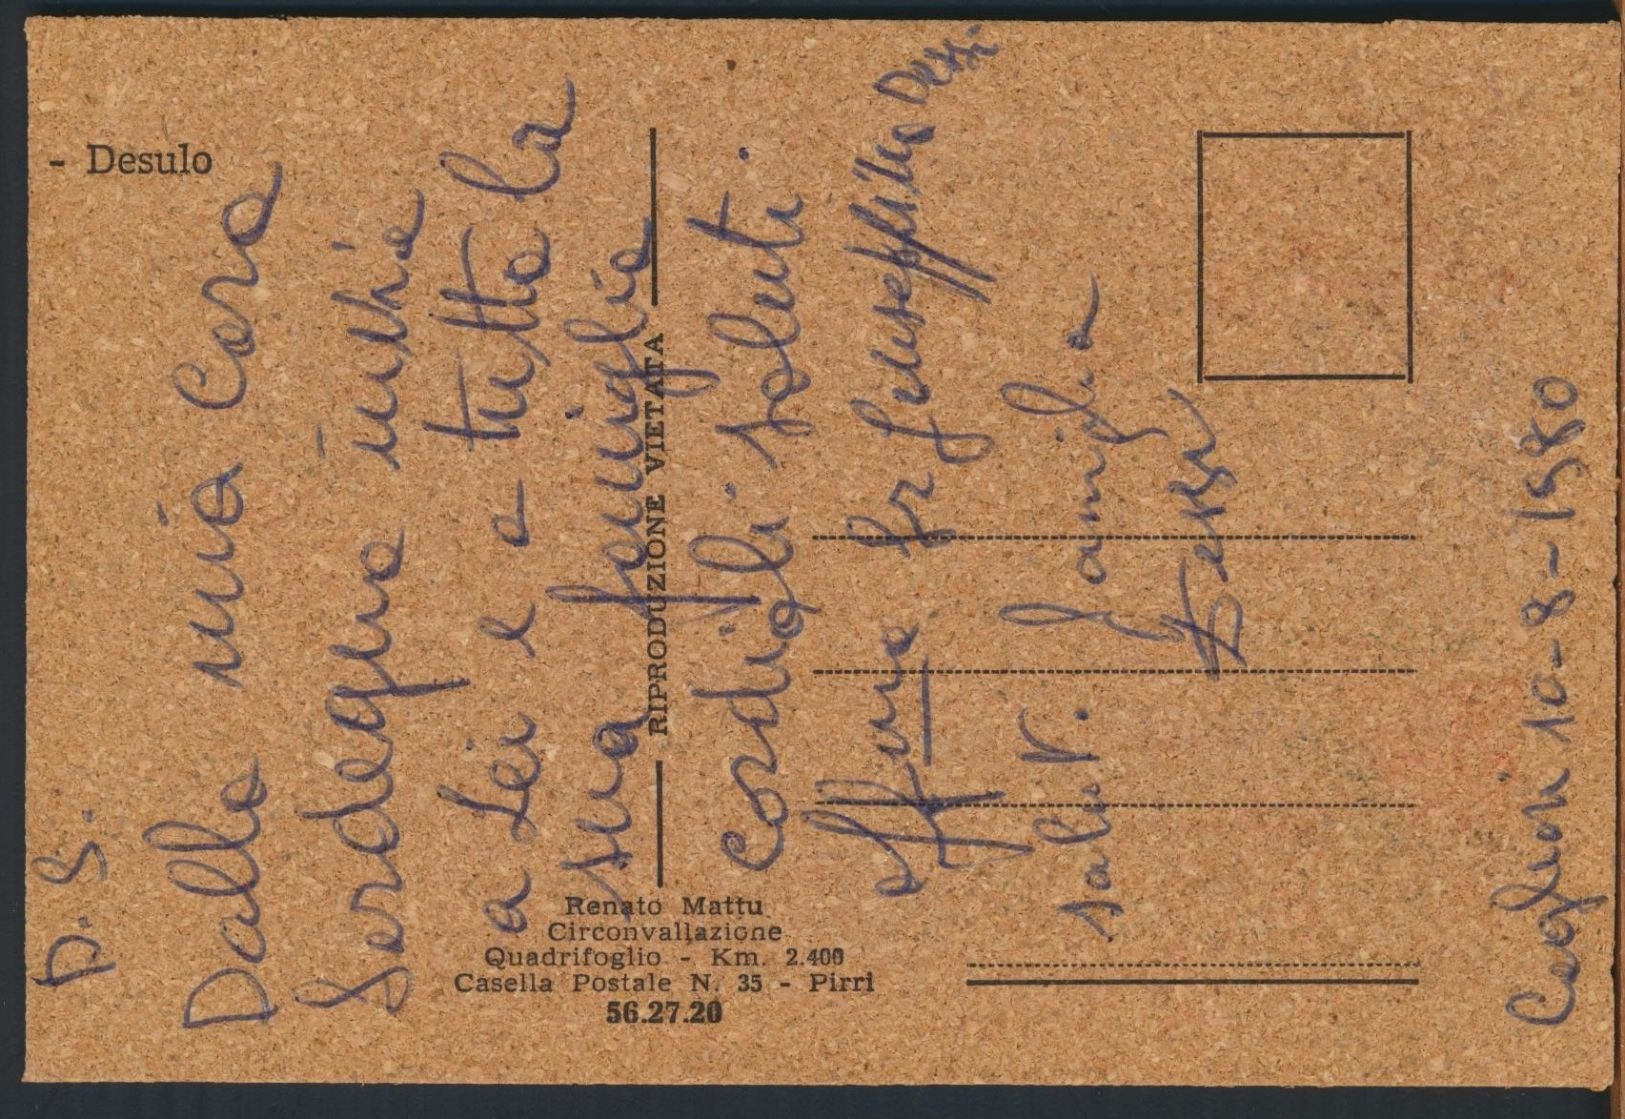 - Desulo
D. S.
Dalla mia Cara
Sardegna invia
a Lei e a tutta la
sua famiglia
Cordiali saluti.
Giuseppina Dessi
saluti famiglia
Dessi
Cagliari 10-8-1980
RIPRODUZIONE VIETATA
Renato Mattu
Circonvallazione
Quadrifoglio - Km. 2.400
Casella Postale N. 35 - Pirri
56.27.20